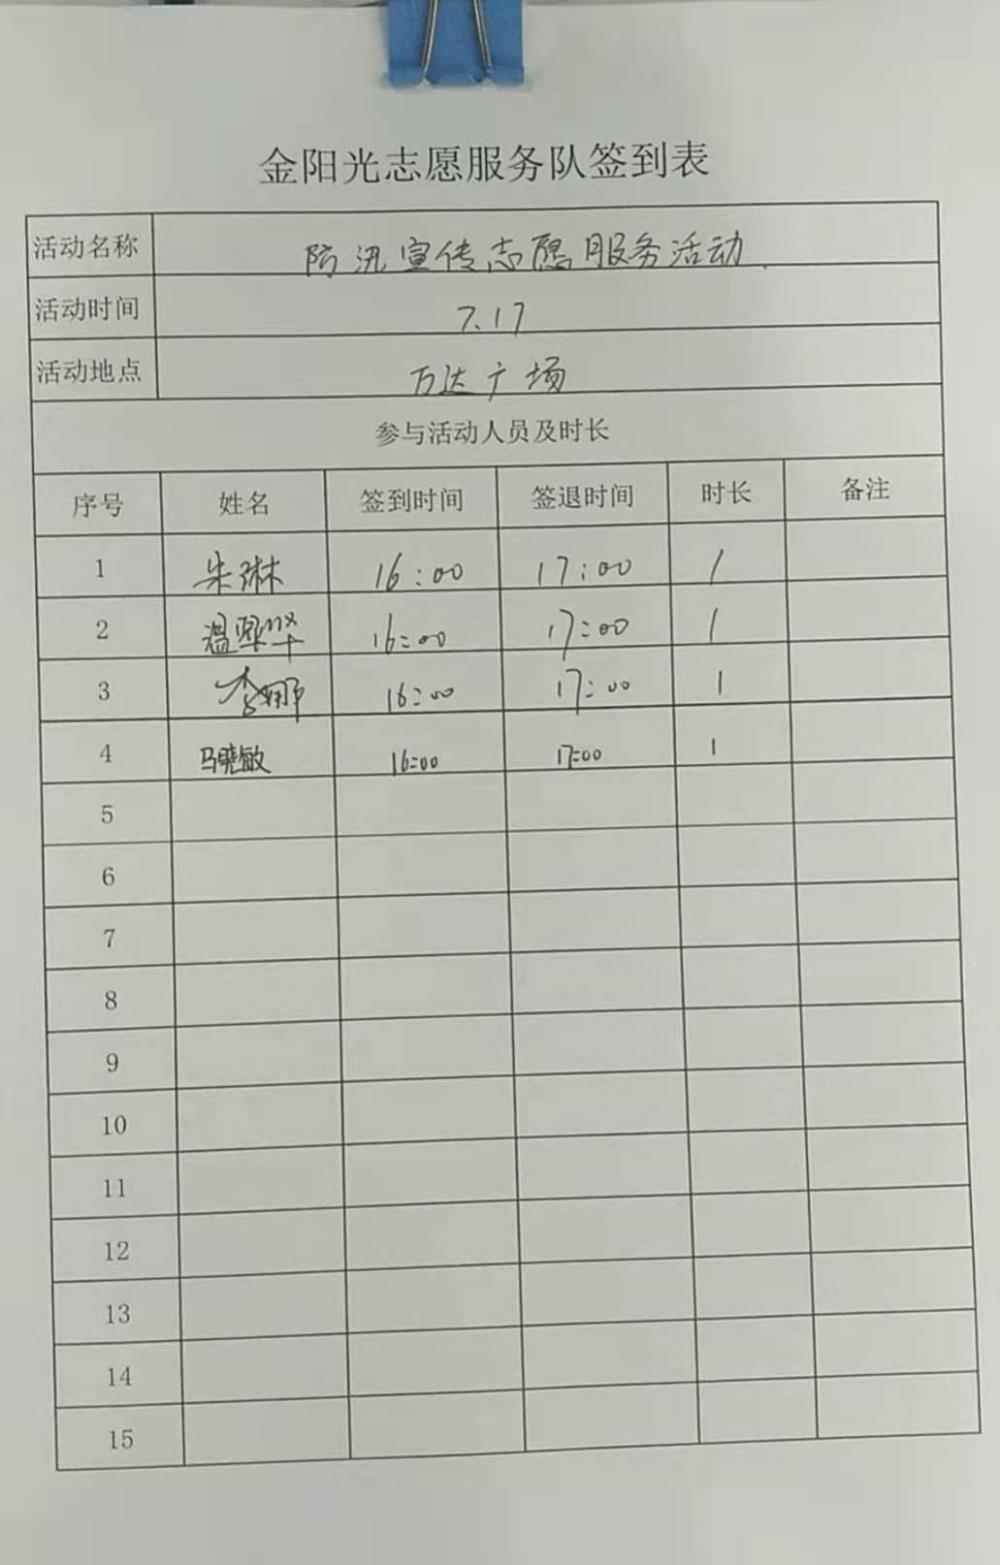 金阳光志愿服务队签到表
活动名称 防汛宣传志愿服务活动
活动时间 7.17
活动地点 万达广场
参与活动人员及时长
序号 姓名 签到时间 签退时间 时长 备注
1 朱琳 16:00 17:00 1
2 温 16:00 17:00 1
3 李娜 16:00 17:00 1
4 马晓敏 16:00 17:00 1
5
6
7
8
9
10
11
12
13
14
15